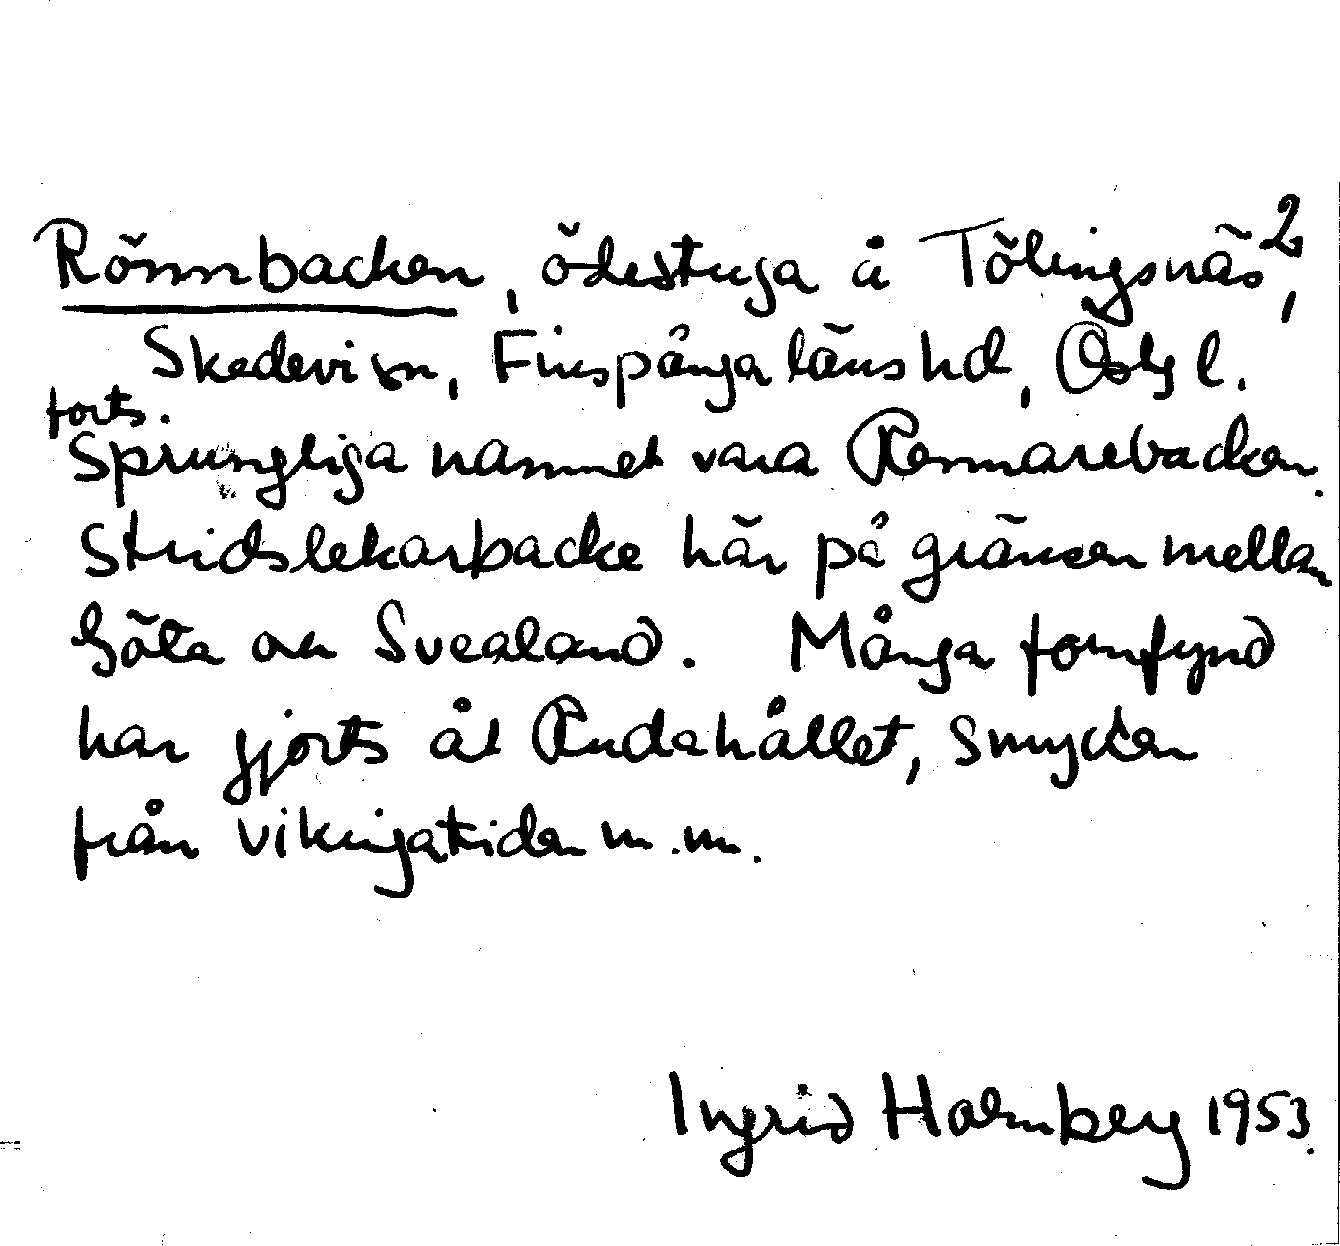 Rönnbacken, ödestuga å Tölingsnäs 2,
Skedevi sn, Finspånga läns hd, Östg l.
forts.
Sprungliga namnet vara Rennarebacken.
Stridslekarbacke här på gränsen mellan
Göta och Svealand. Många fornfynd
har gjorts åt Rudahållet, smycken
från vikingatiden m.m.
Ingrid Holmberg 1953.